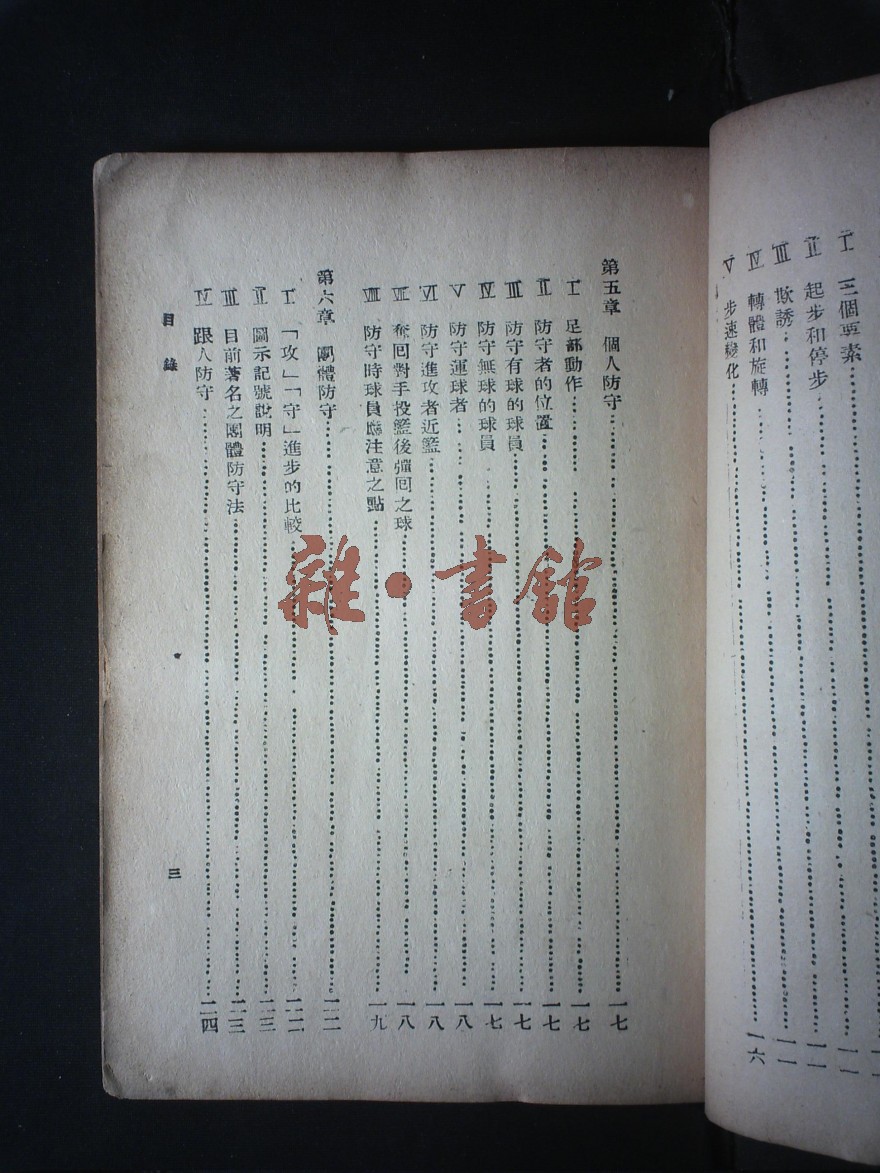 I 三個要素
II 起步和停步
III 欺誘
IV 轉體和旋轉 一六
V 步速變化
第五章 個人防守 一七
I 足部動作 一七
II 防守者的位置 一七
III 防守有球的球員 一七
IV 防守無球的球員 一七
V 防守運球者 一八
VI 防守進攻者近籃 一八
VII 奪回對手投籃後彈回之球 一八
VIII 防守時球員應注意之點 一九
第六章 團體防守
I 「攻」「守」進步的比較
II 圖示記號說明
III 目前著名之團體防守法
IV 跟人防守 二四
目錄
三
雜·書館